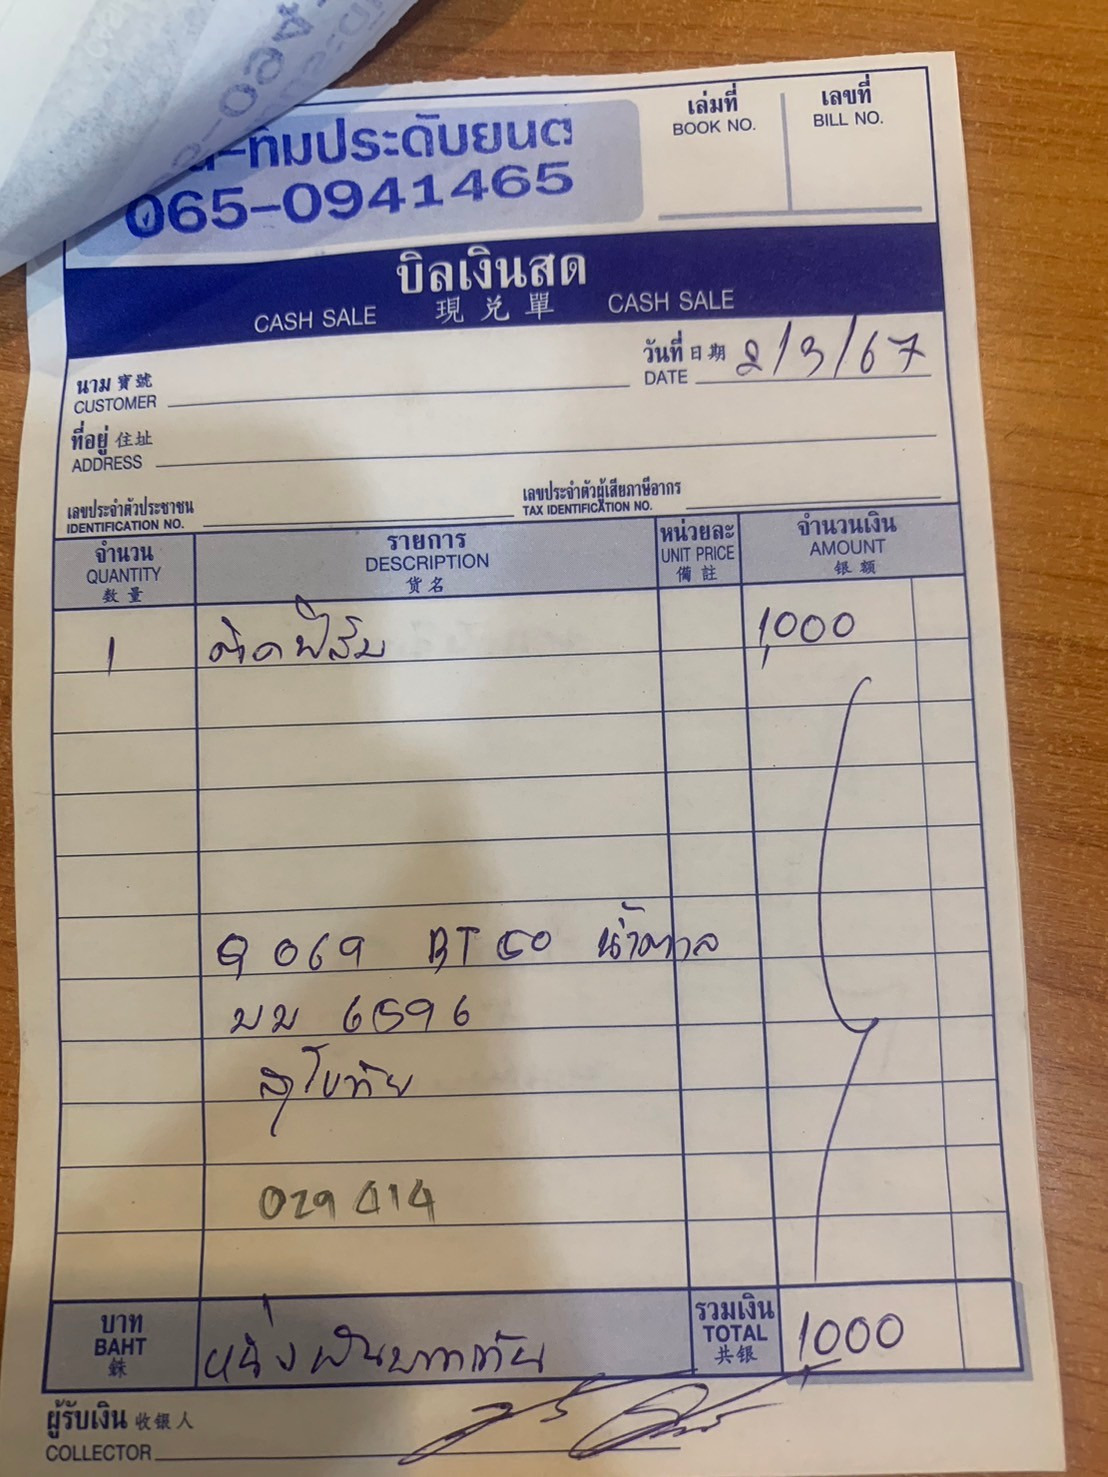 -ทิมประดับยนต์
065-0941465
เล่มที่
BOOK NO.
เลขที่
BILL NO.
บิลเงินสด
CASH SALE 現兌單 CASH SALE
นาม 寶號
CUSTOMER
วันที่ 日期 2/3/67
DATE
ที่อยู่ 住址
ADDRESS
เลขประจำตัวประชาชน
IDENTIFICATION NO.
เลขประจำตัวผู้เสียภาษีอากร
TAX IDENTIFICATION NO.
จำนวน
QUANTITY
数量
รายการ
DESCRIPTION
货名
หน่วยละ
UNIT PRICE
備註
จำนวนเงิน
AMOUNT
银额
1 ติดฟิล์ม 1,000
9 069 BT 50 น้ำตาล
บม 6596
สุโขทัย
029414
บาท
BAHT
銖
หนึ่งพันบาทถ้วน
รวมเงิน
TOTAL
共银
1000
ผู้รับเงิน 收银人
COLLECTOR